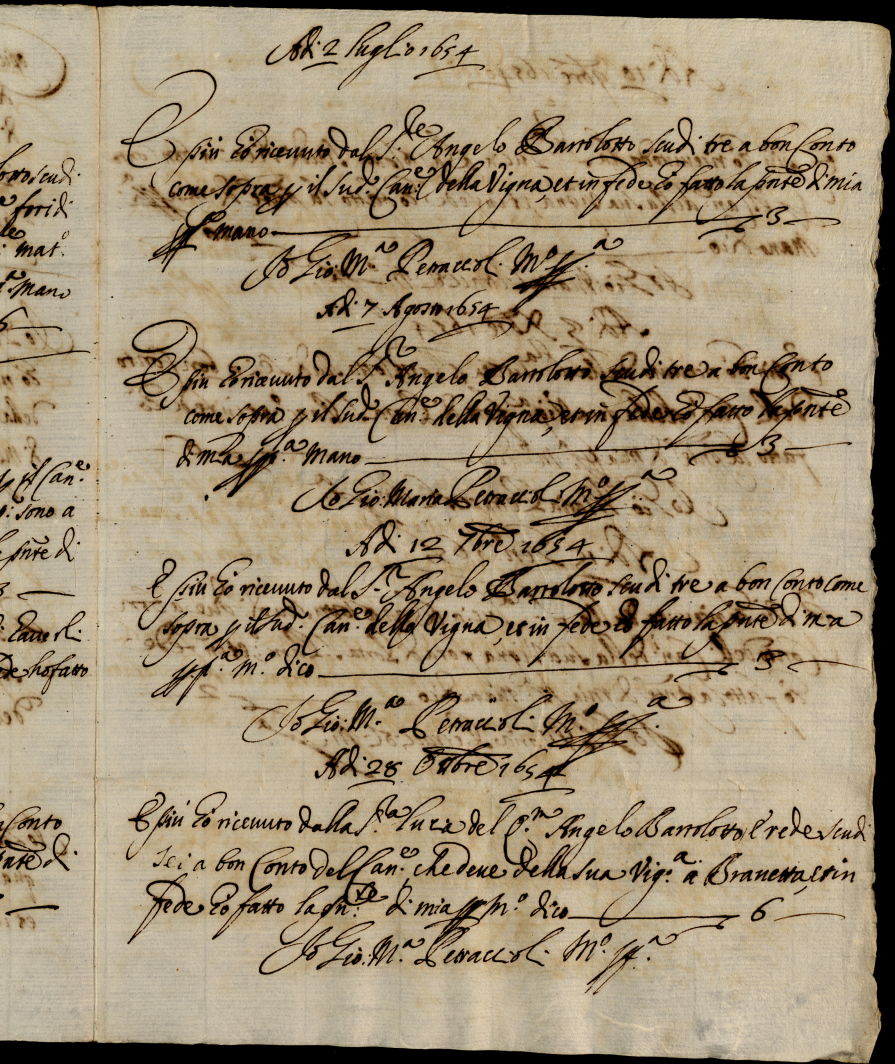 Adi 2 luglio 1654
E più ho riceuuto dal S.re Angelo Bartolotto scudi tre a bon Conto
come sopra p il sud.o Can.e della Vigna, et in fede ho fatto la pnte di mia
pp.a mano 3
Io Gio: M.a Petraccioli M.o pp.a
Adi 7 Agosto 1654
E più ho riceuuto dal S.r Angelo Bartolotto scudi tre a bon Conto
come sopra p il sud.o Can.e della Vigna, et in fede ho fatto la pnte
di mia pp.a mano 3
Io Gio: Maria Petraccioli M.o pp.a
Adi 12 7bre 1654
E più ho riceuuto dal S.r Angelo Bartolotto scudi tre a bon Conto come
sopra p il sud.o Can.e della Vigna, et in fede ho fatto la pnte di mia
pp.a m.o dico 3
Io Gio: M.a Petraccioli M.o pp.a
Adi 28 Ottbre 1654
E più ho riceuuto dalla S.ra del q.m Angelo Bartolotto erede scudi
sei a bon Conto del Can.e che deue della sua Vig.a a Branetta, et in
fede ho fatto la pn.te di mia pp m.o dico 6
Io Gio: M.a Petraccioli M.o pp.a